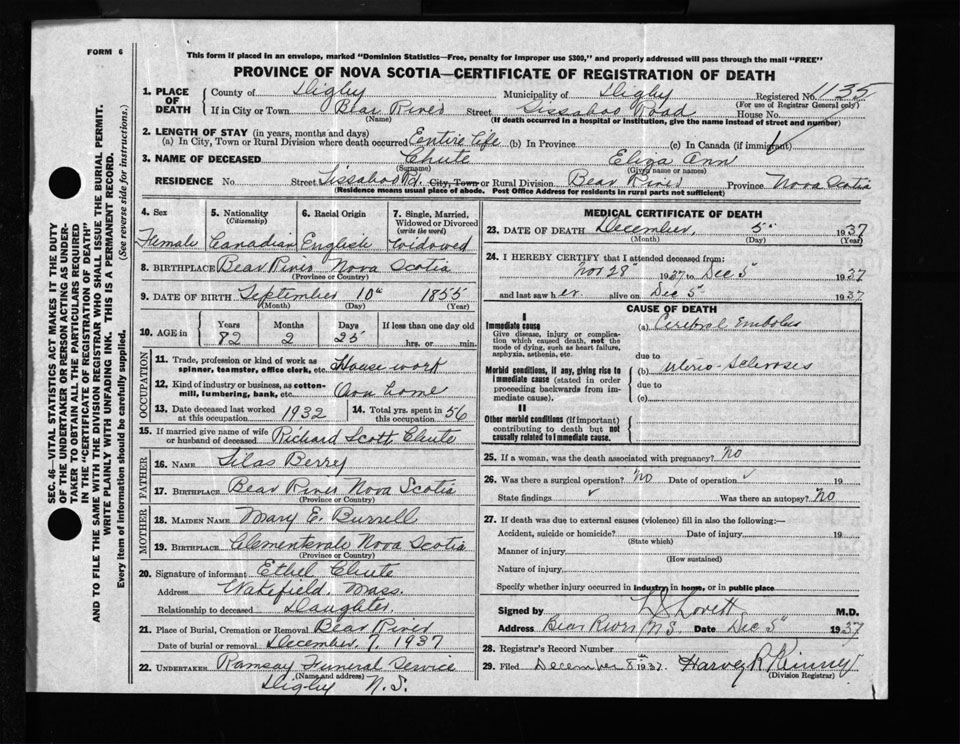 FORM 6
This form if placed in an envelope, marked "Dominion Statistics—Free, penalty for improper use $300," and properly addressed will pass through the mail "FREE"
PROVINCE OF NOVA SCOTIA—CERTIFICATE OF REGISTRATION OF DEATH
1. PLACE OF DEATH
County of Digby Municipality of Digby Registered No. 1135
(For use of Registrar General only)
If in City or Town Bear River Street Sissaboo Road House No.
(Name) (If death occurred in a hospital or institution, give the name instead of street and number)
2. LENGTH OF STAY (in years, months and days)
(a) In City, Town or Rural Division where death occurred Eentire life (b) In Province (c) In Canada (if immigrant)
3. NAME OF DECEASED Chute Eliza Ann
(Surname) (Given name or names)
RESIDENCE No. Street Sissaboo Rd. City, Town or Rural Division Bear River Province Nova Scotia
(Residence means usual place of abode. Post Office Address for residents in rural parts not sufficient)
4. Sex
Female
5. Nationality
(Citizenship)
Canadian
6. Racial Origin
English
7. Single, Married, Widowed or Divorced
(write the word)
Widowed
8. BIRTHPLACE Bear River Nova Scotia
(Province or Country)
9. DATE OF BIRTH September 10th 1855
(Month) (Day) (Year)
10. AGE in
Years Months Days If less than one day old
82 2 25 hrs. or min.
OCCUPATION
11. Trade, profession or kind of work as
spinner, teamster, office clerk, etc. House work
12. Kind of industry or business, as cotton-
mill, lumbering, bank, etc. Own home
13. Date deceased last worked
at this occupation 1932
14. Total yrs. spent in
this occupation 56
15. If married give name of wife
or husband of deceased Richard Scott Chute
FATHER
16. NAME Silas Berry
17. BIRTHPLACE Bear River Nova Scotia
(Province or Country)
MOTHER
18. MAIDEN NAME Mary E. Burrell
19. BIRTHPLACE Clementsvale Nova Scotia
(Province or Country)
20. Signature of informant Ethel Chute
Address Wakefield, Mass.
Relationship to deceased Daughter.
21. Place of Burial, Cremation or Removal Bear River
Date of burial or removal December, 7, 1937
22. UNDERTAKER Ramsay Funeral Service
(Name and address)
Digby N.S.
MEDICAL CERTIFICATE OF DEATH
23. DATE OF DEATH December, 5th 1937
(Month) (Day) (Year)
24. I HEREBY CERTIFY that I attended deceased from:
Nov 28" 1937 to Dec 5" 1937
and last saw her alive on Dec 5" 1937
CAUSE OF DEATH
I
Immediate cause
Give disease, injury or complication which caused death, not the mode of dying, such as heart failure, asphyxia, asthenia, etc.
(a) Cerebral Embolus
due to
Morbid conditions, if any, giving rise to immediate cause (stated in order proceeding backwards from immediate cause).
(b)
due to
(c)
II
Other morbid conditions (if important) contributing to death but not causally related to immediate cause.
25. If a woman, was the death associated with pregnancy? no
26. Was there a surgical operation? No Date of operation 19
State findings Was there an autopsy? No
27. If death was due to external causes (violence) fill in also the following:—
Accident, suicide or homicide? Date of injury 19
(State which)
Manner of injury
(How sustained)
Nature of injury
Specify whether injury occurred in industry, in home, or in public place
Signed by Lovett M.D.
Address Bear River N.S. Date Dec 5" 1937
28. Registrar's Record Number
29. Filed December 8th 1937. Harvey R Kinney
(Division Registrar)
SEC. 46—VITAL STATISTICS ACT MAKES IT THE DUTY
OF THE UNDERTAKER OR PERSON ACTING AS UNDER-
TAKER TO OBTAIN ALL THE PARTICULARS REQUIRED
IN THE "CERTIFICATE OF REGISTRATION OF DEATH"
AND TO FILE THE SAME WITH THE DIVISION REGISTRAR WHO SHALL ISSUE THE BURIAL PERMIT.
WRITE PLAINLY WITH UNFADING INK. THIS IS A PERMANENT RECORD.
Every item of information should be carefully supplied. (See reverse side for instructions.)